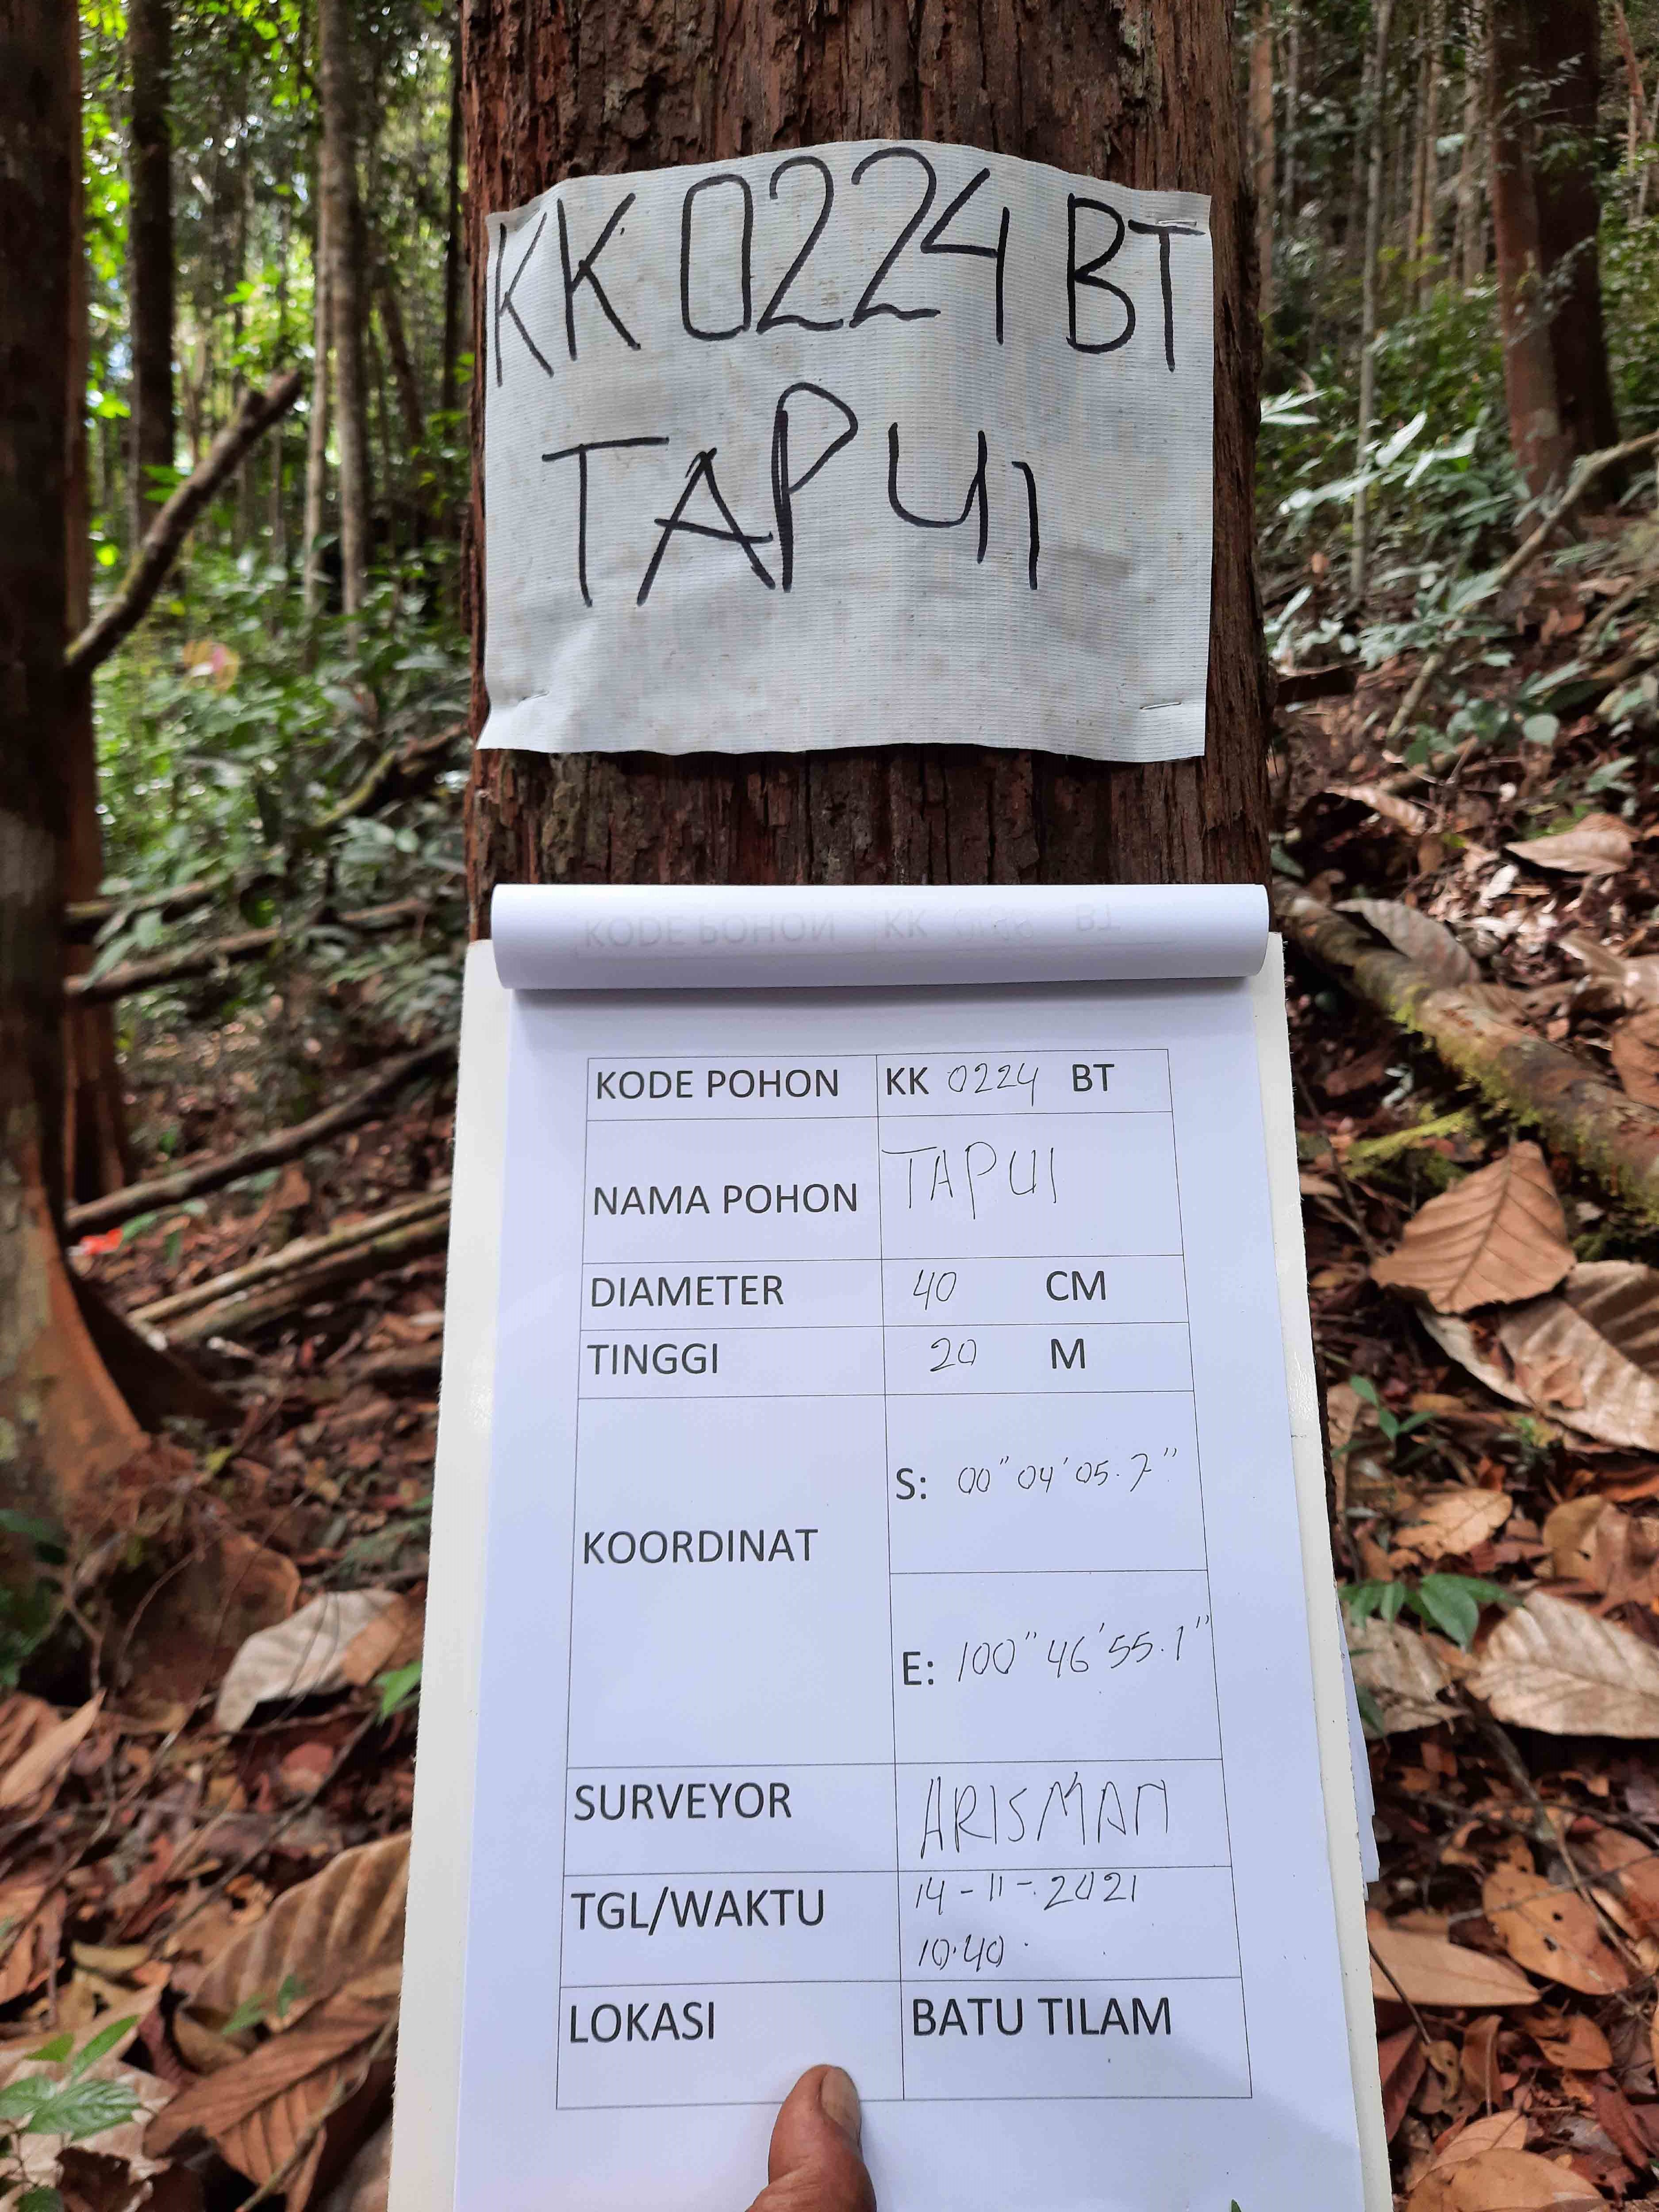 KK 0224 BT
TAPUI
KODE POHON KK BT
KODE POHON KK 0224 BT
NAMA POHON TAPUI
DIAMETER 40 CM
TINGGI 20 M
KOORDINAT
S: 00" 04' 05.7"
E: 100" 46' 55.1"
SURVEYOR ARISMAN
TGL/WAKTU 14-11-2021
10.40
LOKASI BATU TILAM